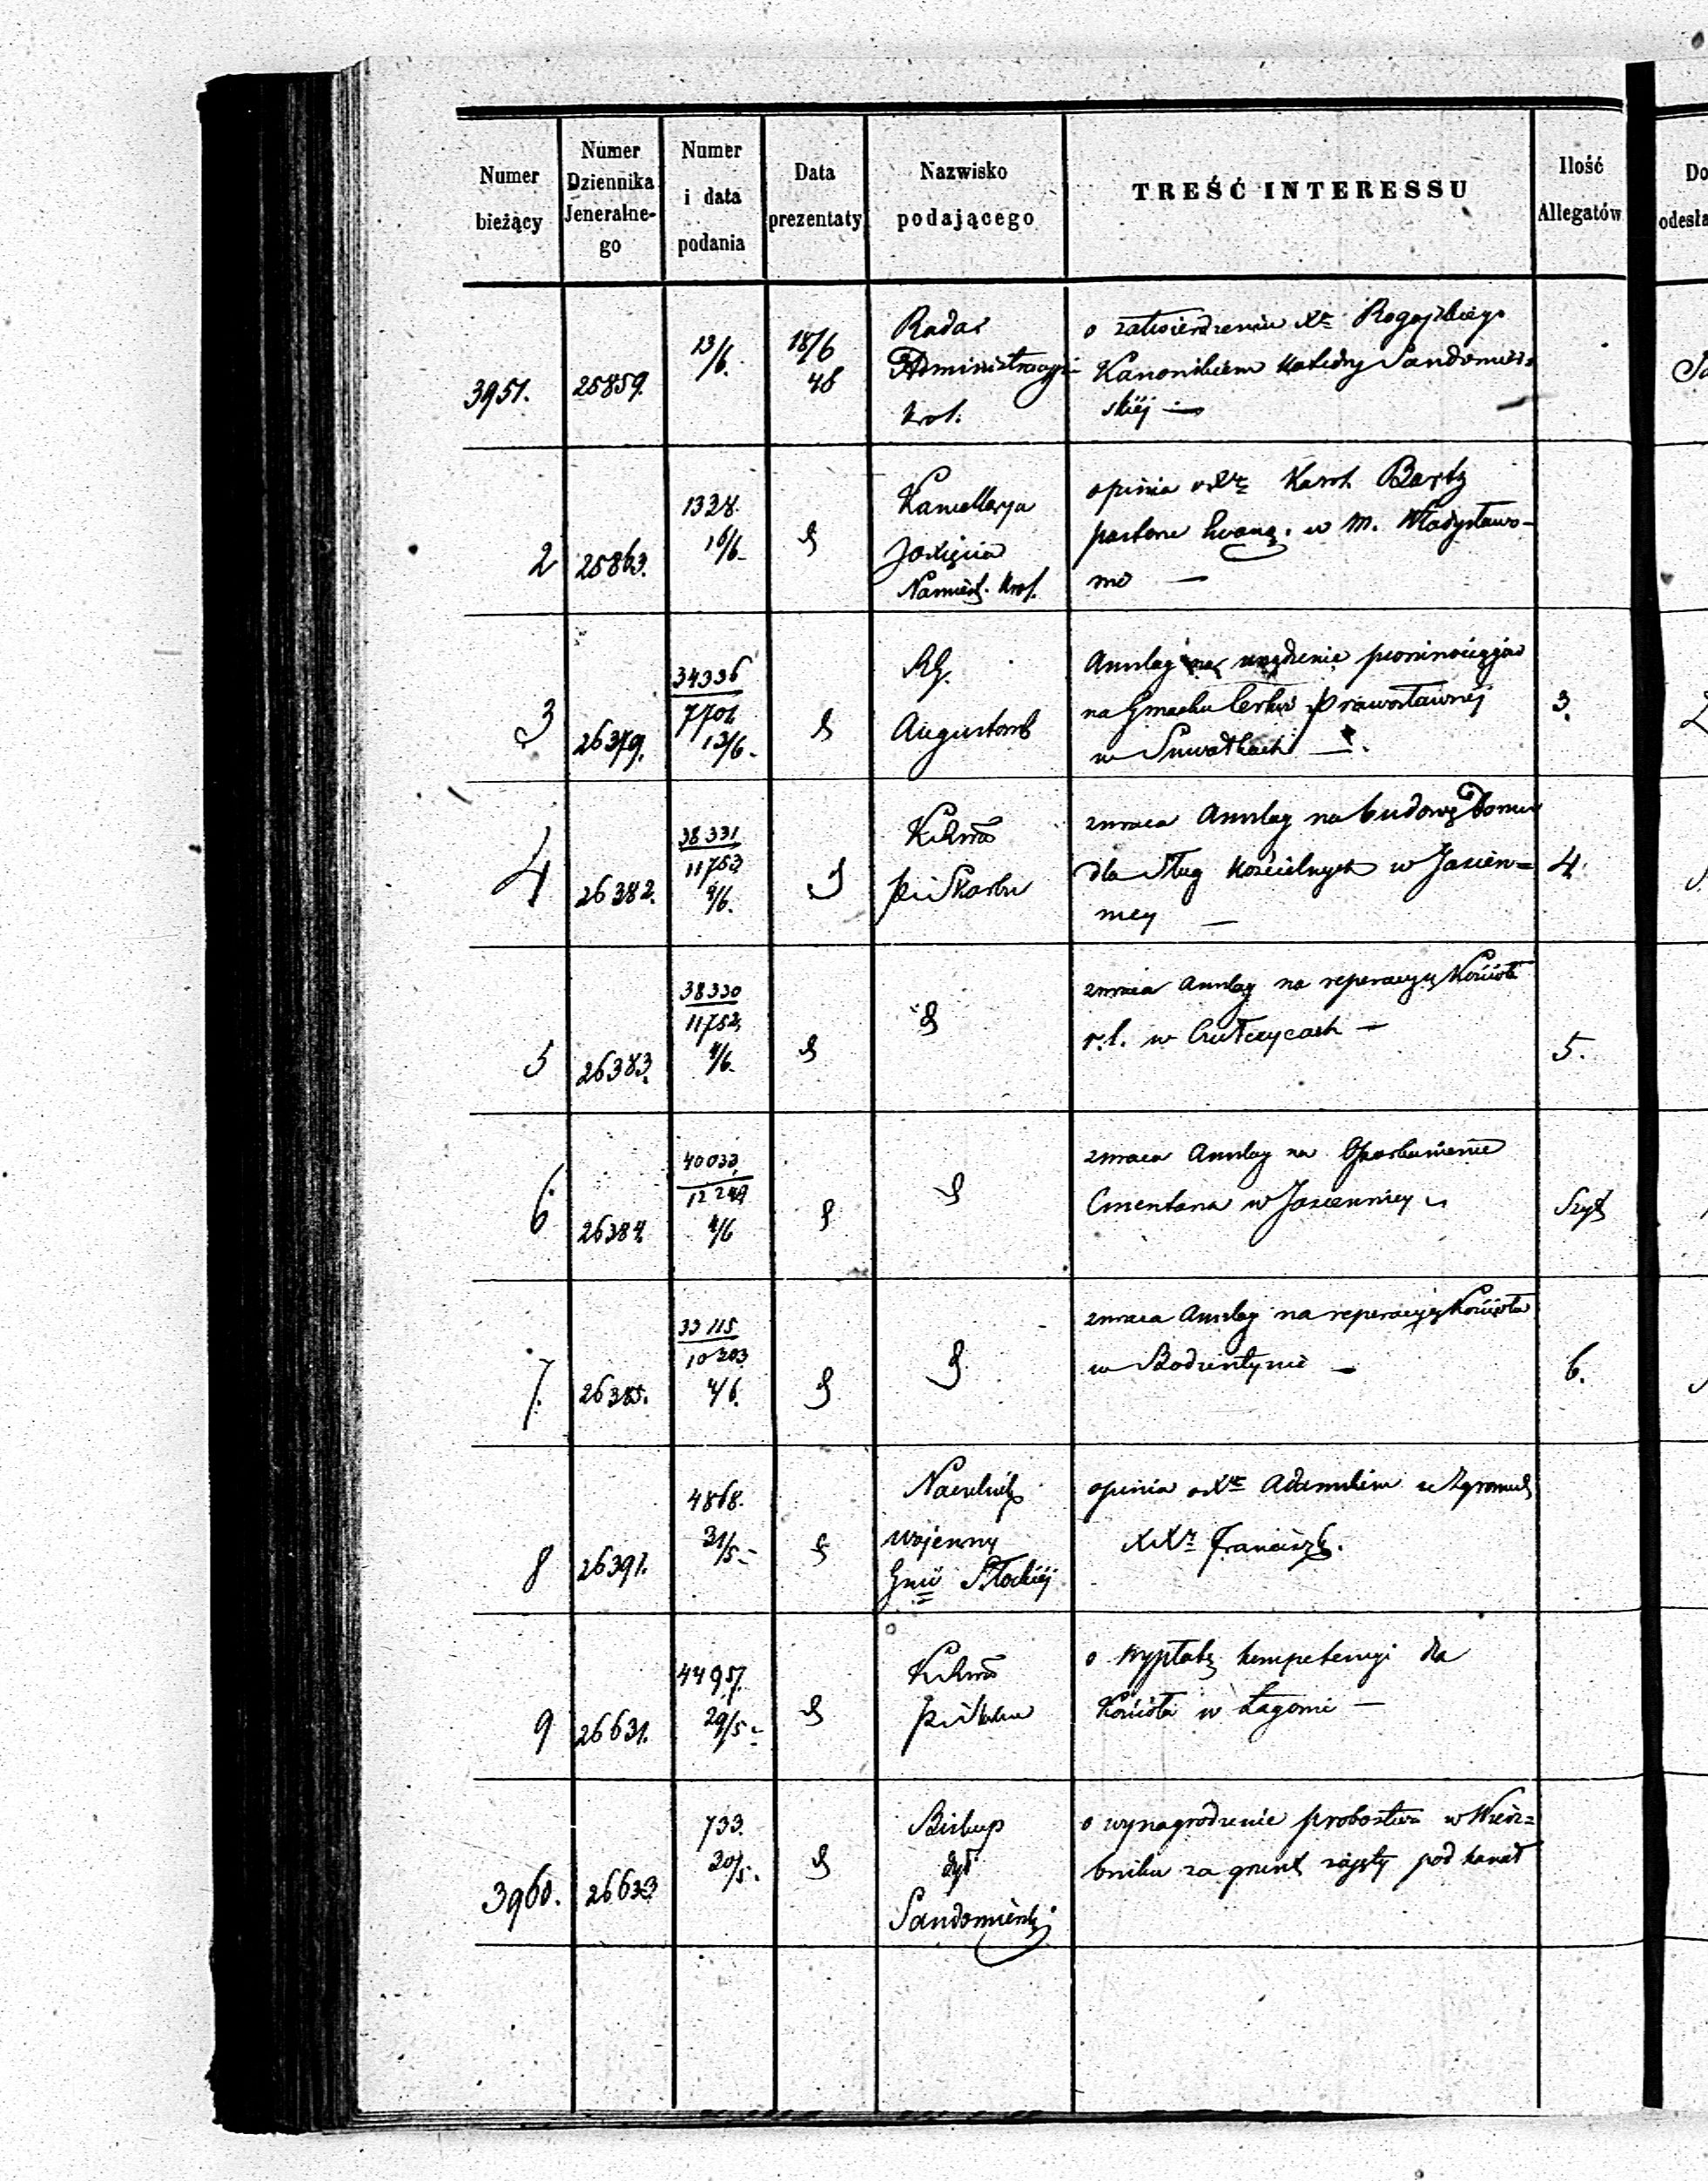 Numer bieżący
Numer Dziennika Jeneralnego
Numer i data podania
Data prezentaty
Nazwisko podającego
TREŚĆ INTERESSU
Ilość Allegatów
3951. 25859. 13/6. 18/6 48
Rada
Administracyj
Krol.
o zatwierdzeniu Xa Rogojskiego
Kanonikiem Katedry Sandomir=
skiéj —
2 25863. 1328. 16/6
Kancellarya
Xięcia
Namiest. Krol.
opinia o Karol Bartz
pastorze Ewang. w M. Władysławo-
wie —
3 26379. 34336 7701 13/6
RG.
Augustows
Anszlag na urządzenie piorunociągów
na Gmachu Cerkwi Prawosławnéj
w Suwałkach —
3.
4 26382. 38331 11753 4/6.
KRwa
pi Skarbu
zwraca Anszlag na budowę Domu
dla Sług Kościelnych w Jasien=
nicy —
4.
5 26383. 38330 11752 4/6.
zwraca Anszlag na reperacyę Kościoła
r.l. w
5.
6 26384. 40033 12249 4/6
zwraca Anszlag na Oparkanienie
Cmentarza w Jasiennicy
Szyt
7. 26385. 33115 10303 4/6.
zwraca Anszlag na reperacyę Kościoła
w Bodzentynie —
6.
8 26391. 4868. 31/5
Naczelnik
wojenny
Gnii Płockiéj
opinia o Xu Adamskim ze Zgromad
XXy Franciszk.
9 26631. 44957. 29/5
KRwa
pi Skarbu
o wypłatę kompetencyi dla
Kościoła w Łagowie —
3960. 26633 733. 30/5.
Biskup
Dyec
Sandomierski
o wynagrodzenie probostwa w Wierz=
bniku za grunt zajęty pod kanał